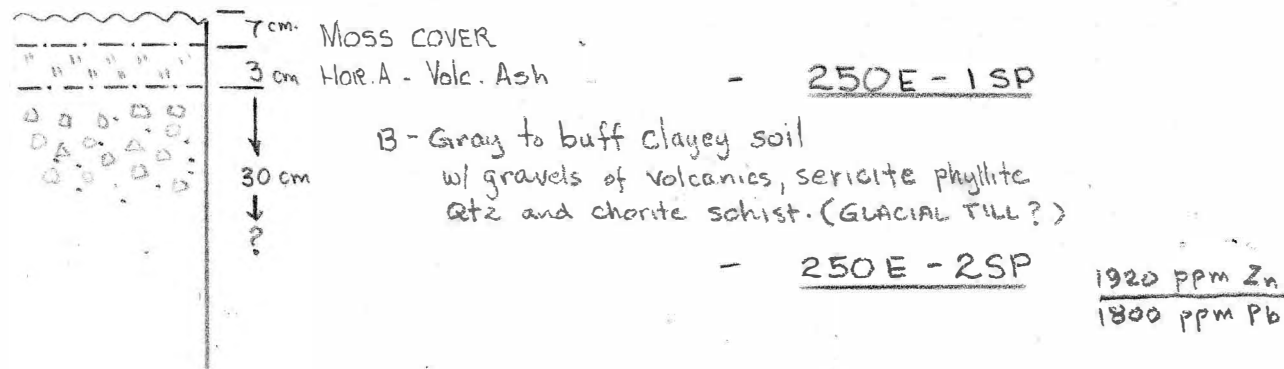 7 cm. MOSS COVER
3 cm HOR.A - Volc. Ash - 250E - 1SP
B - Gray to buff clayey soil
30 cm w/ gravels of volcanics, sericite phyllite
Qtz and chorite schist. (GLACIAL TILL?)
?
- 250E - 2SP
1920 ppm Zn
1800 ppm Pb